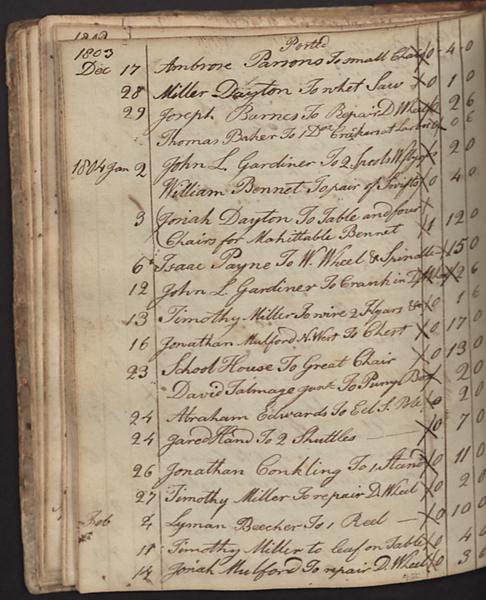 1803 Posted
Dec 17 Ambrose Parsons To small Chair X 0 - 4 0
28 Miller Dayton To whet Saw X 0 1 0
29 Joseph Barnes To Repair D. Wheel 0 2 6
Thomas Baker To 1 Doz Crakers at
1804 Jan 2 John L. Gardiner To 2 Spools X 0 2 0
William Bennet To pair of Swifts X 0 4 0
3 Josiah Dayton To Table and four X
Chairs for Mahittable Bennet 1 12 0
6 Isaac Payne To W. Wheel & Spindle 15 0
12 John L. Gardiner To Crank in 2 6
13 Timothy Miller To wire 2 Flyars &c X 0 1 6
16 Jonathan Mulford N. West To Chest X 0 17 0
23 School House To Great Chair X 0 13 0
David Talmage junr To Pump Box X 2 0
24 Abraham Edwards To Eel S. Pole X 0 2 0
24 Jared Hand To 2 Shuttles — X 0 7 0
26 Jonathan Conkling To 1 Stand X 0 11 0
27 Timothy Miller To repair D. Wheel X 0 2 0
Feb 2 Lyman Beecher To 1 Reel — X 0 10 0
11 Timothy Miller to leaf on Table X 0 4 0
14 Josiah Mulford To repair D. Wheel X 0 3 0